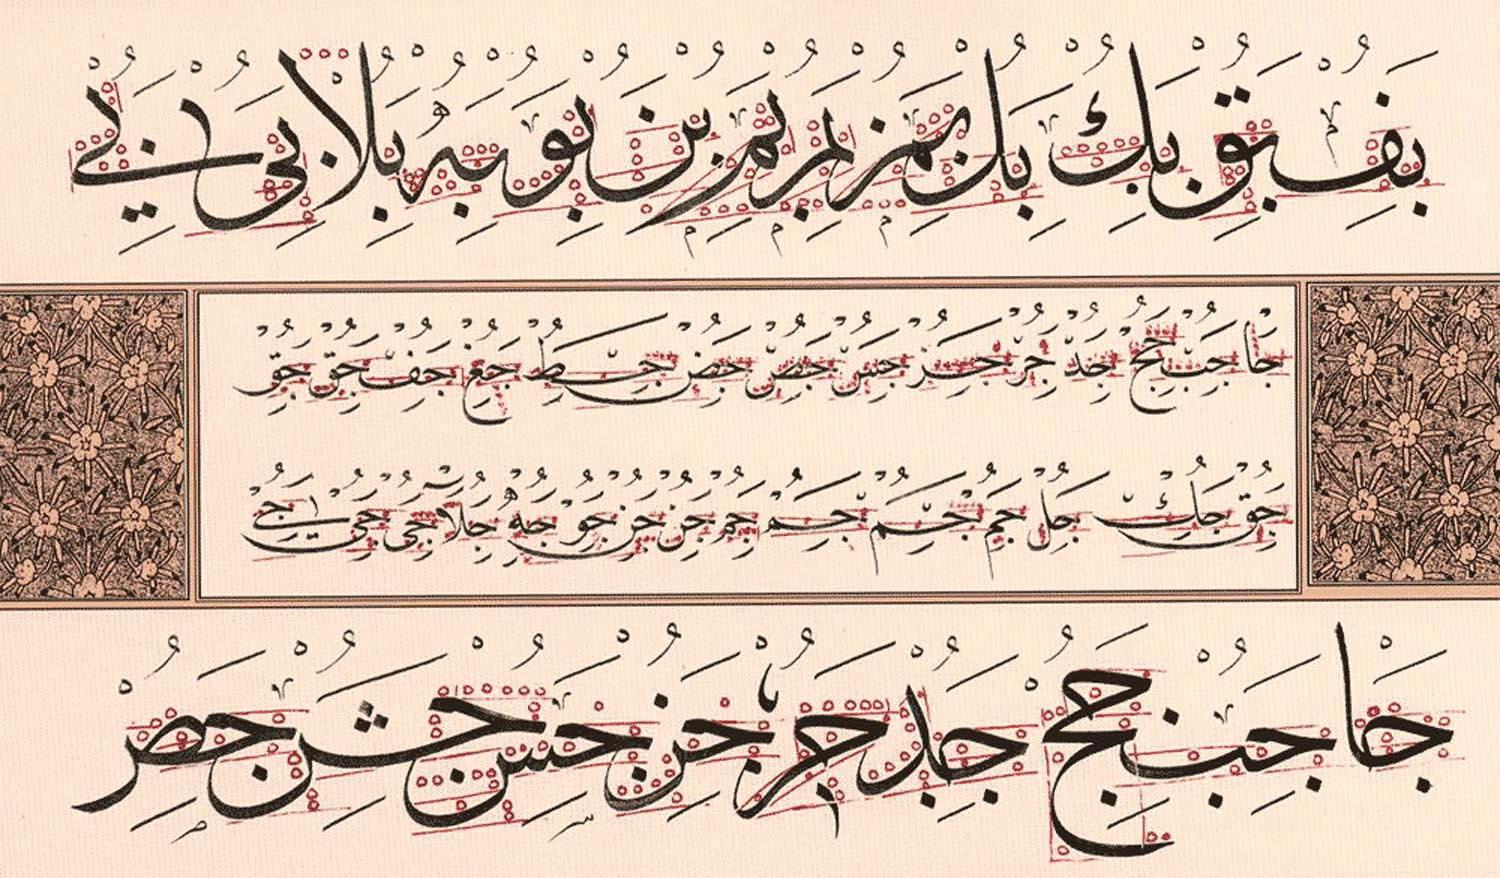 بف بق بك بل بم بم بم بن بو به بلا بى بى
جا جب جح جد جر جر جس جص جص جط جع جف جق جو
جق جك جل جم جم جم جم جن جن جو جه جلا جى جى جى
جا جب جح جد جر جر جس جس جص